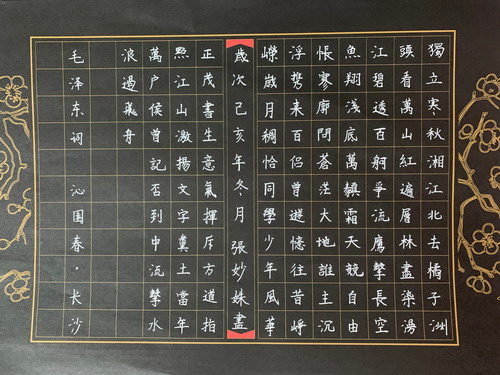 獨立寒秋湘江北去橘子洲
頭看萬山紅遍層林盡染漫
江碧透百舸爭流鷹擊長空
魚翔淺底萬類霜天競自由
悵寥廓問蒼茫大地誰主沉
浮攜來百侶曾遊憶往昔崢
嶸歲月稠恰同學少年風華
歲次己亥年冬月 張妙姝書
正茂書生意氣揮斥方遒指
點江山激揚文字糞土當年
萬户侯曾記否到中流擊水
浪遏飛舟
毛泽东词 沁园春·长沙